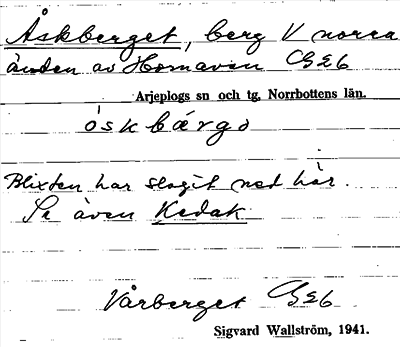 Åskberget, berg V norra
änden av Hornavan GE6
Arjeplogs sn och tg, Norrbottens län.
óskbárgo
Blixten har slagit ned här.
Se även Kedak
Vårberget GE6
Sigvard Wallström, 1941.